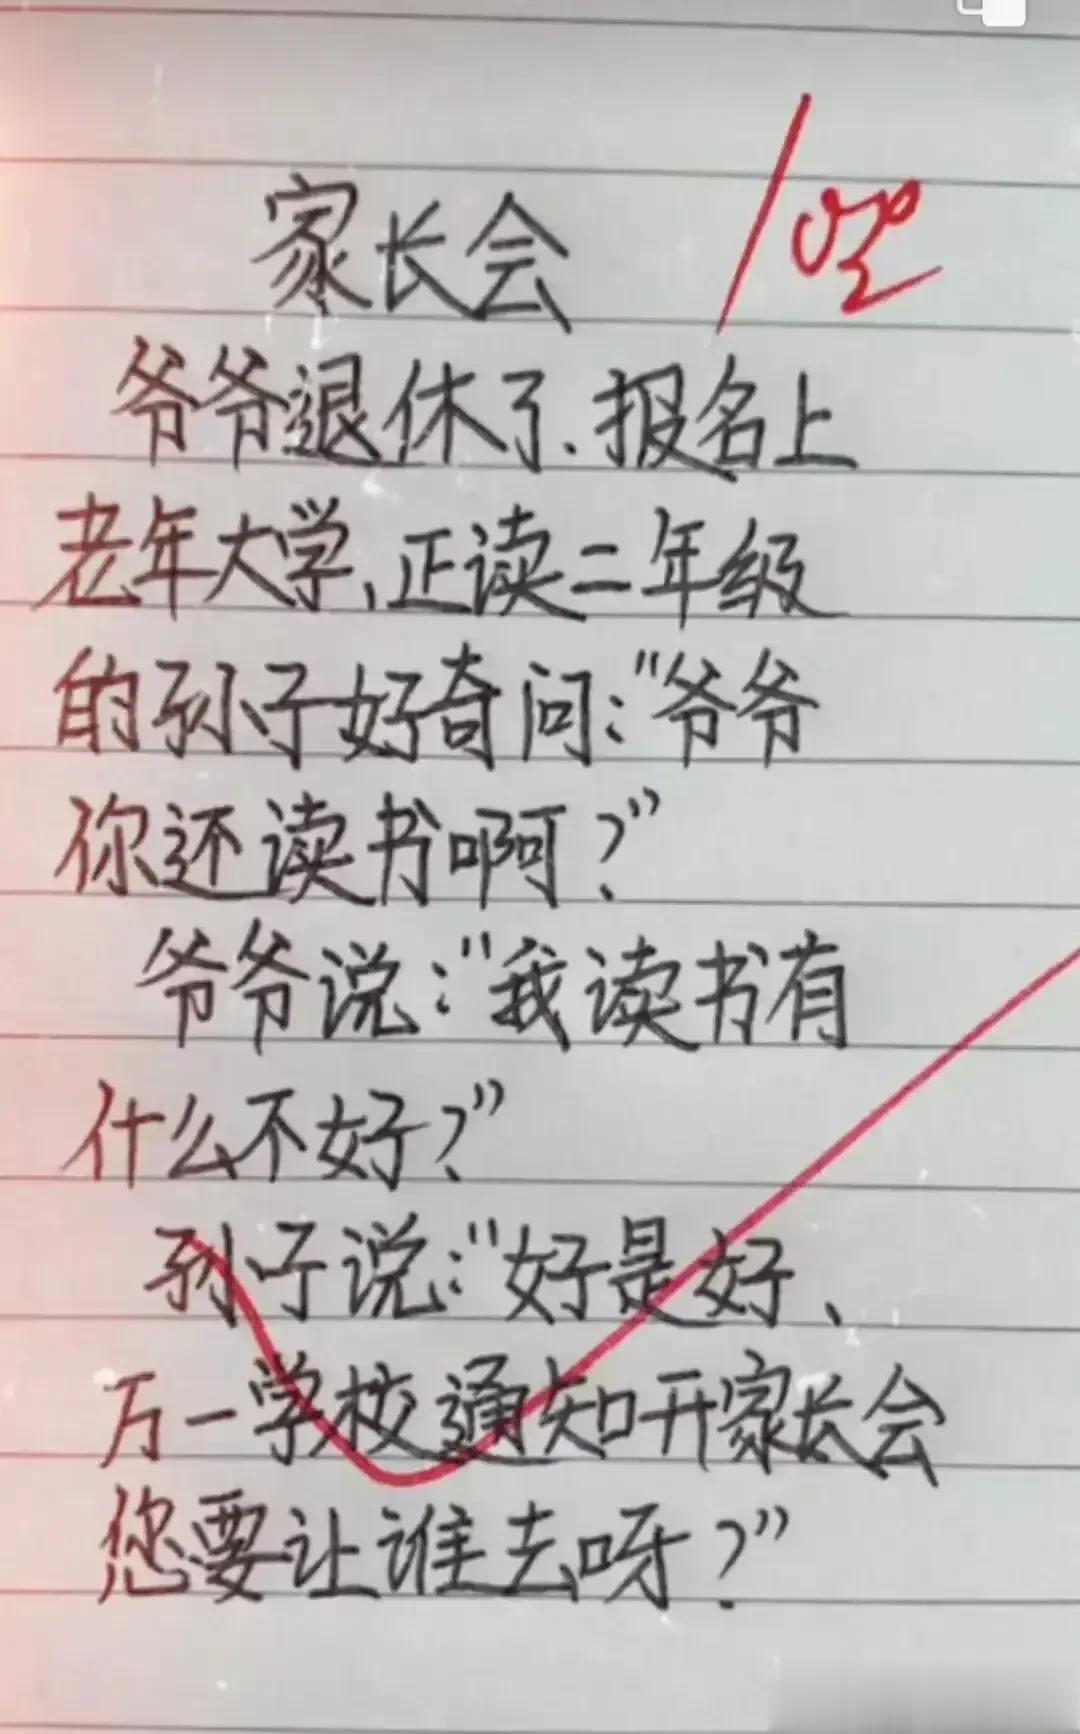 家长会
爷爷退休了、报名上
老年大学、正读二年级
的孙子好奇问:"爷爷
你还读书啊?"
爷爷说:"我读书有
什么不好?"
孙子说:"好是好、
万一学校通知开家长会
您要让谁去呀?"